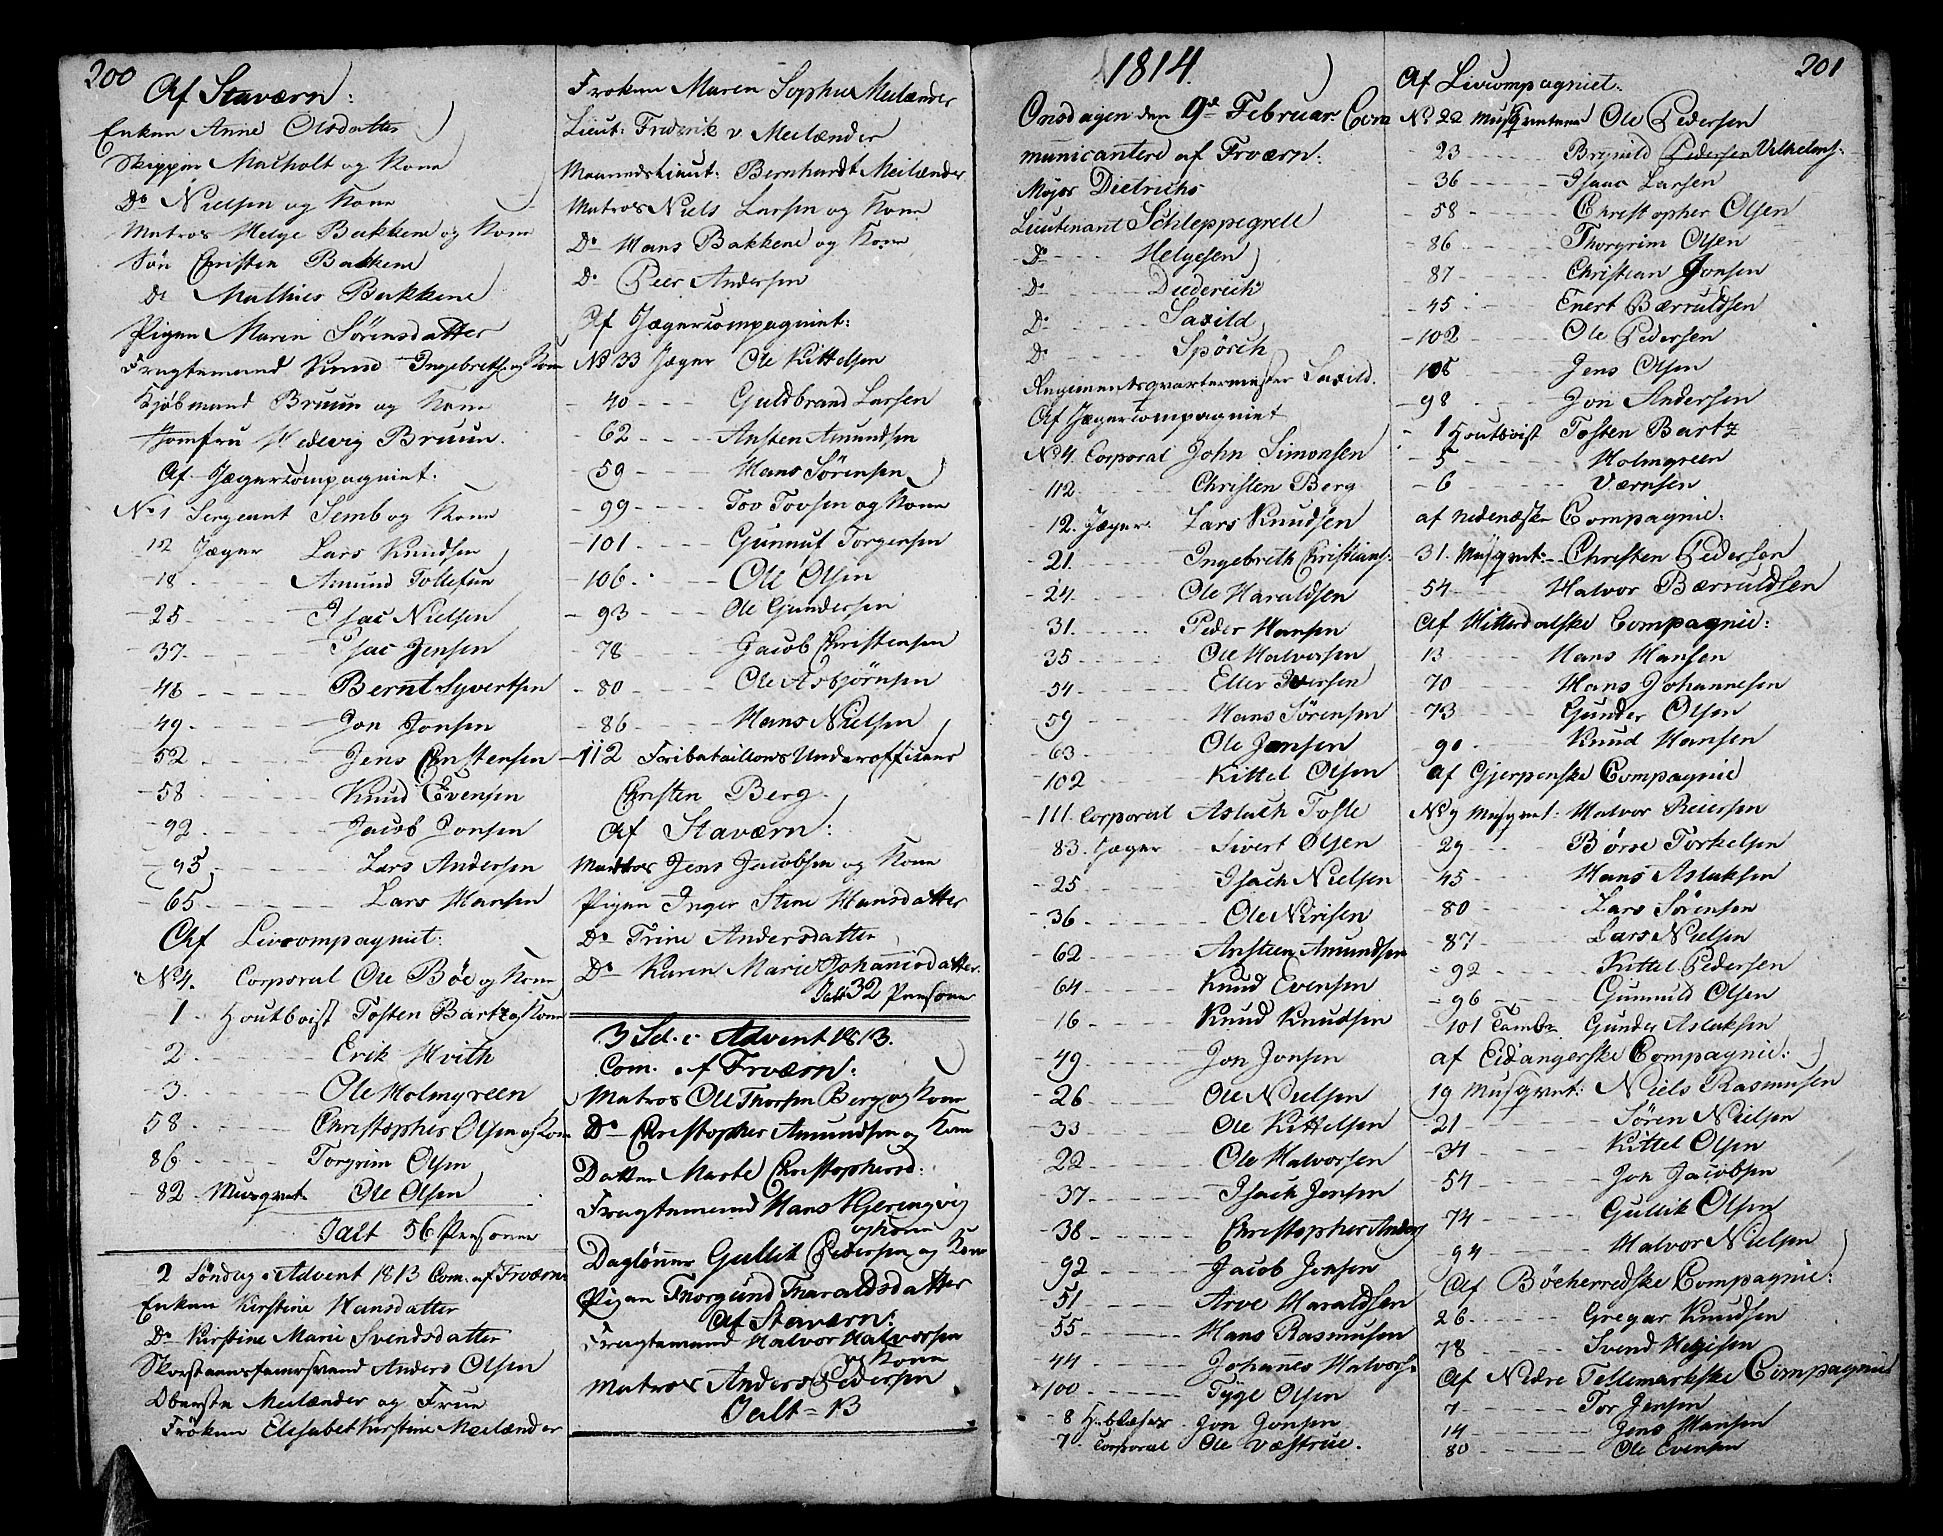 200
Af Staværn:
Enken Anne Olsdatter
Skipper Malholt og Kone
Do Nielsen og Kone
Matros Helge Bakkene og Kone
Søn Christen Bakkene
Do Mathies Bakkene
Pigen Maren Sørensdatter
Fragtemand Knud Ingebretsen og Kone
Kjøbmand Bruun og Kone
Jomfru Hedevig Bruun.
Af Jægercompagniet:
No 1 Sergeant Semb og Kone
- 12 Jæger Lars Knudsen
- 18 Amund Tollefsen
- 25 Isac Nielsen
- 37 Isac Jensen
- 46 Bernt Syvertsen
- 49 Jon Jonsen
- 52 Jens Christensen
- 58 Knud Evensen
- 92 Jacob Jonsen
- 95 Lars Andersen
- 65 Lars Hansen
Af Livcompagniet:
No 4. Corporal Ole Böe og Kone
- 1 Houtboist Tosten Bartz og Kone
- 2 Erik Hvith
- 3 Ole Holmgreen
58 Christopher Olsen og Kone
86 Torgrim Olsen
- 82 Musqvet Ole Olsen
Ialt 56 Personer
2 Søndag i Advent 1813 Com. af Fværn
Enken Kirstine Hansdatter
Do Kirstine Marie Svendsdatter
Skorsteensfeiersvend Anders Olsen
Oberste Meilænder og Frue
Frøken Elisabet Kirstine Meilænder
Frøken Maren Sophie Meilænder
Lieut: Frederik v Meilænder
Maanedslieut: Bernhardt Meilænder
Matros Niels Larsen og Kone
Do Hans Bakkene og Kone
Do Peer Andersen
Af Jægercompagniet:
No 33 Jæger Ole Kittelsen
- 40 Guldbrand Larsen
- 62 Ansten Amundsen
- 59 Hans Sörensen
- 99 Tov Tovsen og Kone
- 101 Gunnut Torgersen
- 106 Ole Olsen
- 93 Ole Gundersen
- 78 Jacob Christensen
- 80 Ole Asbjørnsen
- 86 Hans Nielsen
- 112 Fribataillons Underofficeer
Christen Berg
Af Staværn:
Matros Jens Jacobsen og Kone
Pigen Inger Stine Hansdatter
Do Trine Andersdatter
Do Karen Marie Johannisdatter
Ialt 32 Personer
3 Sd. i Advent 1813.
Com. af Fværn:
Matros Ole Thorsen Berg og Kone
Do Christopher Amundsen og Kone
Datter Marte Christophersd:
Fragtemand Hans Kjeringvig
og Kone
Daglønner Gullik Pedersen og Kone
Pigen Thorgund Tharaldsdatter
Af Staværn:
Fragtemand Halvor Halvorsen
og Kone
Matros Anders Pedersen
Ialt - 13
1814.
Onsdagen den 9de Februar Com
municantere af Fværn:
Major Dietrichs
Lieutenant Schleppegrell
Do Helgesen
Do Diederich
Do Saxild
Do Spörch
Regimentsqvartermester Saxild.
Af Jægercompagniet
No 4. Corporal John Simonsen
- 112 Christen Berg
- 12. Jæger. Lars Knudsen
- 21. Ingebreth Christians:
- 24. Ole Haraldsen
31. Peder Hansen
35 Ole Halvorsen
- 54 Eller Iversen
- 59 Hans Sörensen
- 63 Ole Jensen
- 102 Kittel Olsen
- 111 Corporal Aslach Tosle
- 83. Jæger Sivert Olsen
- 25 Isach Nielsen
- 36 Ole Nirisen
- 62 Anstien Amundsen
- 64 Knud Evensen
- 16 Knud Knudsen
- 49 Jon Jonsen
- 26 Ole Nielsen
- 33 Ole Kittelsen
- 22 Ole Halvorsen
- 37 Isach Jensen
- 38 Christopher Anders
- 92 Jacob Jonsen
- 51 Arve Haraldsen
- 55 Hans Rasmusen
- 44 Johannes Halvors:
- 100 Tyge Olsen
- 8 H.blæser Jon Jonsen
- 7. Corporal Ole Væstrue.
201
Af Livcompagniet:
No 22 Musqveteer Ole Pedersen
- 23 Brynild Pedersen Vilhelms:
- 36 Isaac Larsen
- 58 Christopher Olsen
- 86 Thorgrim Olsen
- 87 Christian Jonsen
- 45 Enert Bærruldsen
- 102 Ole Pedersen
106 Jens Olsen
- 98 Jon Andersen
- 1 Houtboist Tosten Bartz
- 5 Holmgreen
- 6 Værnsen
af Nedenæske Compagnie:
31. Musqvet: Christen Pedersen
54 Halvor Bærruldsen
Af Hitterdalske Compagnie:
13 Hans Hansen
70 Hans Johannesen
- 73 Gunder Olsen
- 90 Knud Hansen
af Gjerpenske Compagnie
No 9 Musqvet: Halvor Reiersen
- 29 Börre Torkelsen
- 45 Hans Aslaksen
- 80 Lars Sörensen
- 87 Lars Nielsen
- 92 Kittel Pedersen
- 96 Gunnuld Olsen
- 101 Tambr Gunder Aslaksen
af Eidangerske Compagnie:
19 Musqvet: Niels Rasmusen
- 21 Sören Nielsen
- 34 Kittel Olsen
- 54 Jon Jacobsen
- 74 Gullik Olsen
- 94 Halvor Nielsen
Af Böeherredske Compagnie:
26 Gregar Knudsen
78 Svend Helgesen
Af Nedre Tellemarkske Compagnie
7 Tor Jensen
14 Jens Hansen
80 Ole Evensen